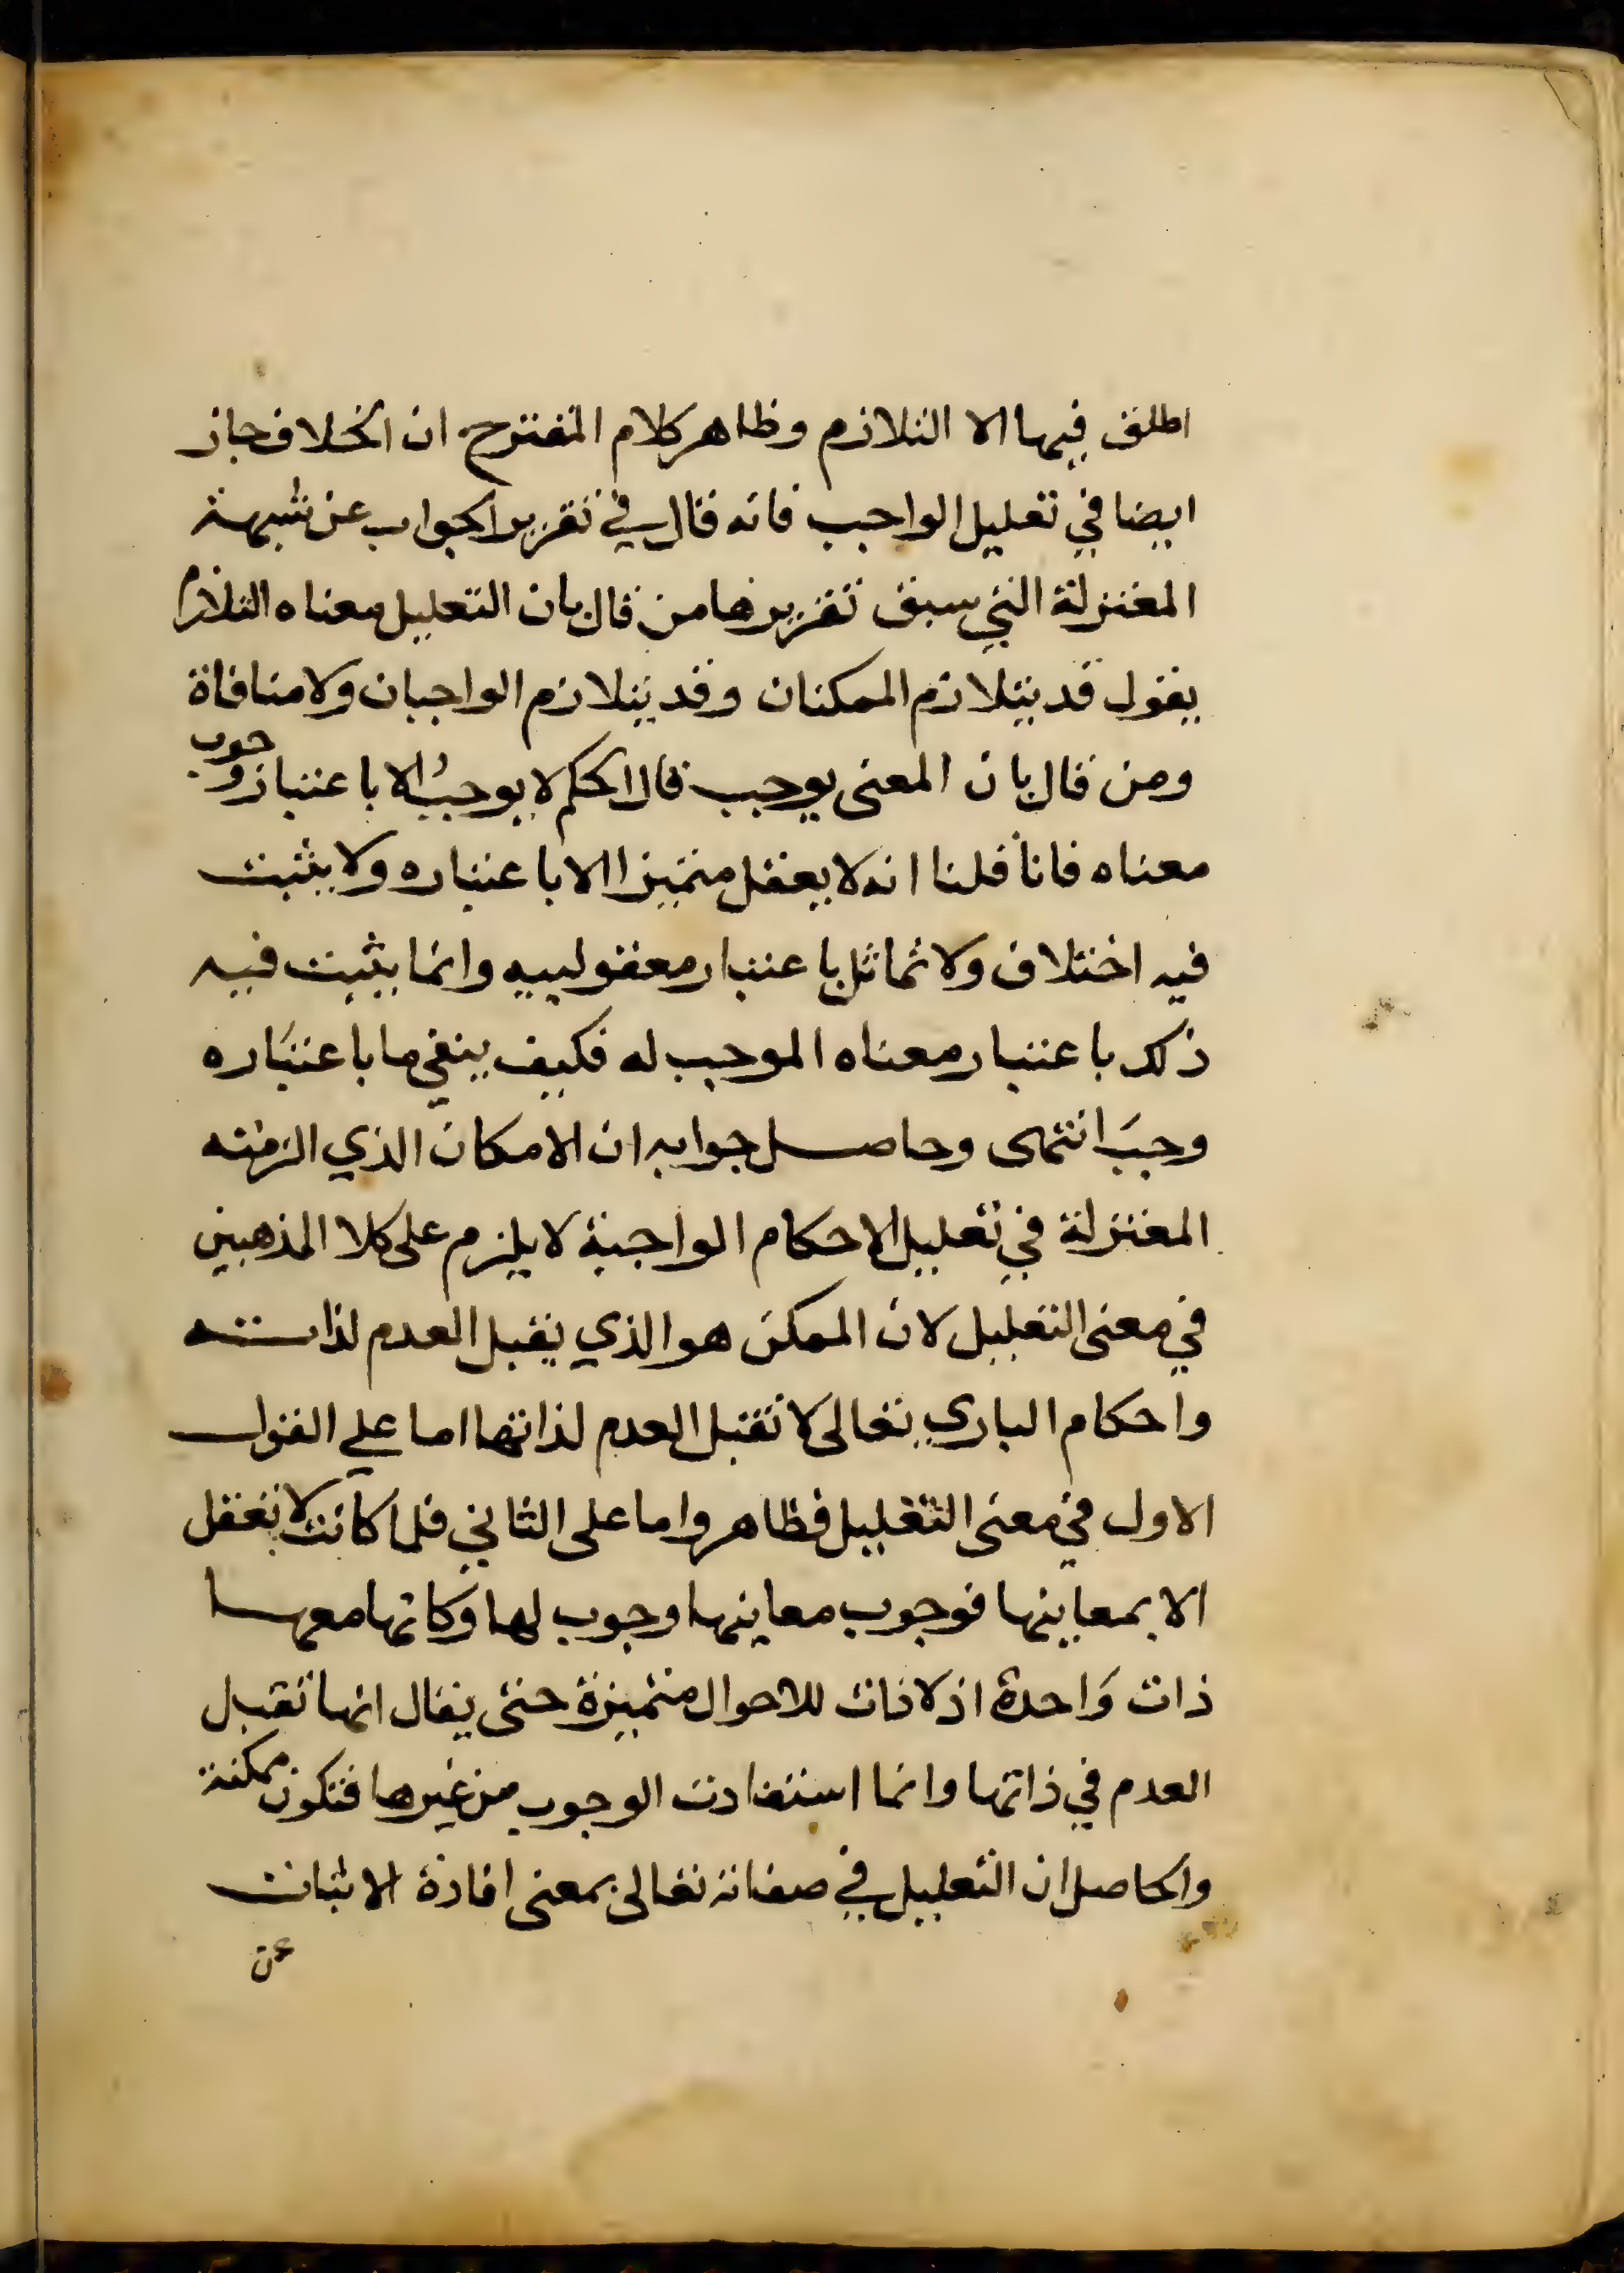 اطلق فيها الا التلازم وظاهر كلام المقترح ان الخلاف جار
ايضا في تعليل الواجب فانه قال في تقرير الجواب عن شبهة
المعتزلة التي سبق تقريرها من قال بان التعليل معناه التلازم
يقول قد يتلازم الممكنان وقد يتلازم الواجبان ولا منافاة
ومن قال بان المعنى يوجب قال الحكم لا يوجب الا باعتبار وجوب
معناه فانا قلنا انه لا يعقل متميزا الا باعتباره ولا يثبت
فيه اختلاف ولا تماثل باعتبار معقولييه وانما يثبت فيه
ذلك باعتبار معناه الموجب له فكيف ينفي ما باعتباره
وجب انتهى وحاصل جوابه ان الامكان الذي الزمته
المعتزلة في تعليل الاحكام الواجبة لا يلزم على كلا المذهبين
في معنى التعليل لان الممكن هو الذي يقبل العدم لذاته
واحكام الباري تعالى لا تقبل العدم لذاتها اما علي القول
الاول في معنى التعليل فظاهر واما على الثاني فلما كانت لا تعقل
الا بمعانيها فوجوب معانيها وجوب لها وكانها معها
ذات واحدة اذ لا ذات للاحوال متميزة حتى يقال انها تقبل
العدم في ذاتها وانما استفادت الوجوب من غيرها فتكون ممكنة
والحاصل ان التعليل في صفاته تعالى بمعنى افادة الاثبات
عن